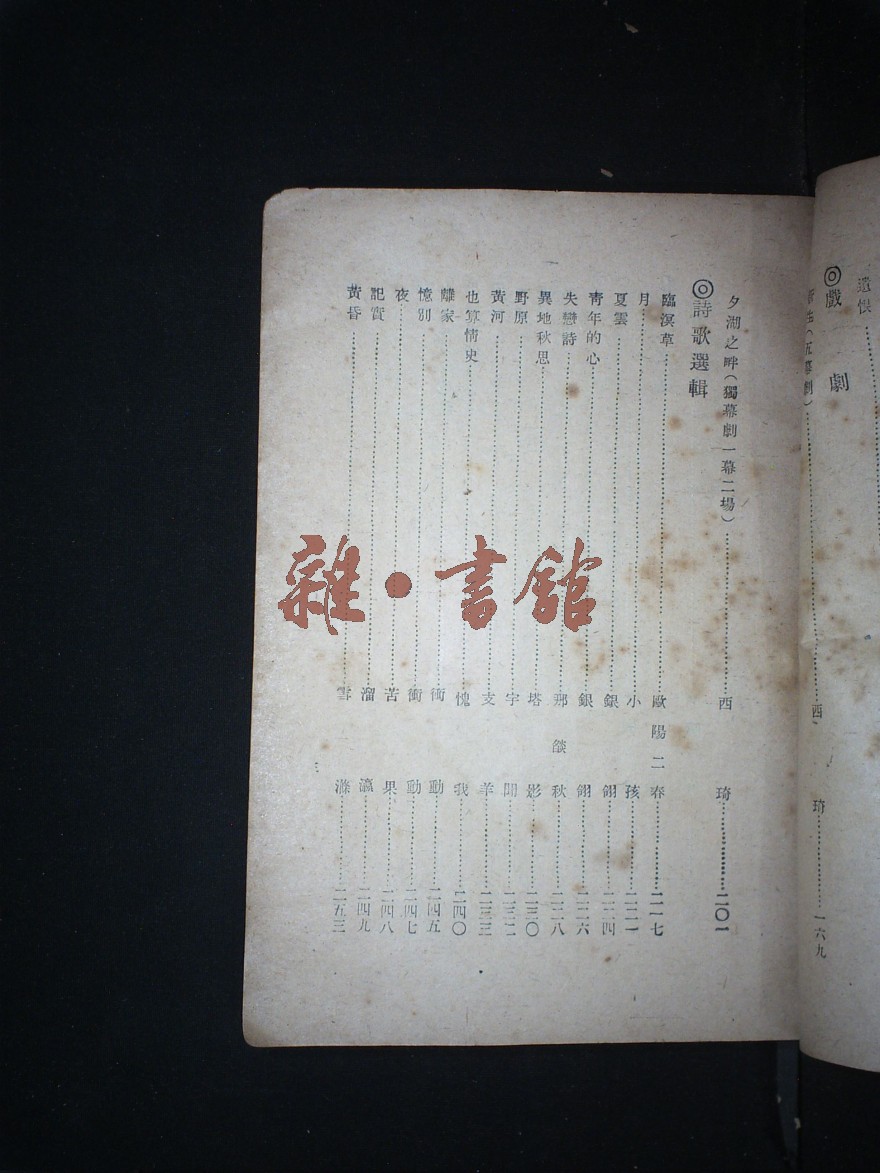 遺恨
◎戲劇
（五幕劇）……西琦……一六九
夕湖之畔（獨幕劇一幕二場）……西琦……二〇一
◎詩歌選輯
臨溟草……歐陽二春……二一七
月……小孩……二二一
夏雲……銀翎……二二四
青年的心……銀翎……二二六
失戀詩……邢燄秋……二二八
異地秋思……塔影……二三〇
野原……宇聞……二三二
黃河……支羊……二三三
也算情史……愧我……二四〇
離家……衝動……二四五
憶別……衝動……二四七
夜……苦果……二四八
記實……溜瀛……二四九
黃昏……雪滌……二五三
雜•書館